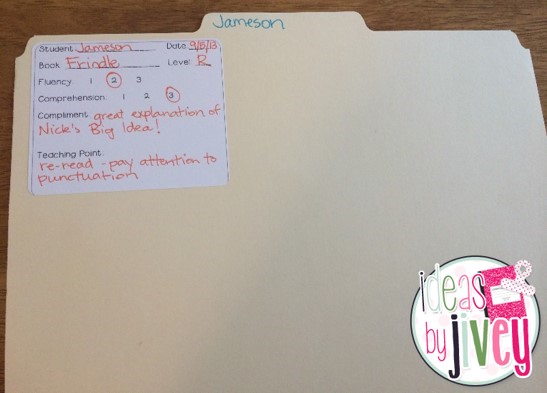 Jameson
Student: Jameson Date: 9/5/13
Book: Frindle Level: R
Fluency: 1 2 3
Comprehension: 1 2 3
Compliment: great explanation of
Nick's Big Idea!
Teaching Point:
re-read - pay attention to
punctuation
ideas
by jivey